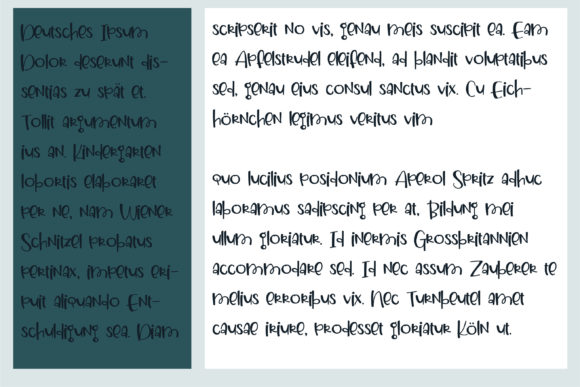 Deutsches Ipsum
Dolor deserunt dis-
sentias zu spät et.
Tollit argumentum
ius an. Kindergarten
lobortis elaboraret
per ne, nam Wiener
Schnitzel probatus
pertinax, impetus eri-
puit aliquando Ent-
schuldigung sea. Diam
scripserit no vis, genau meis suscipit ea. Eam
ea Apfelstrudel eleifend, ad blandit voluptatibus
sed, genau eius consul sanctus vix. Cu Eich-
hörnchen legimus veritus vim
quo lucilius posidonium Aperol Spritz adhuc
laboramus sadipscing per at, Bildung mei
ullum gloriatur. Id inermis Grossbritannien
accommodare sed. Id nec assum Zauberer te
melius erroribus vix. Nec Turnbeutel amet
causae iriure, prodesset gloriatur Köln ut.